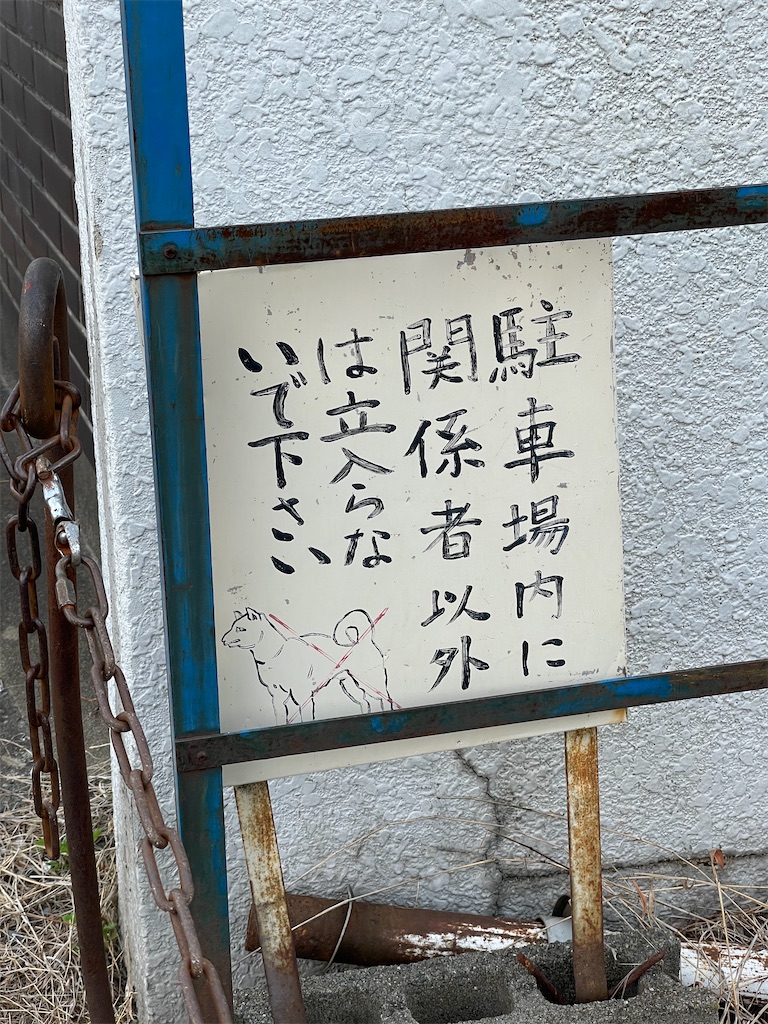 駐車場内に
関係者以外
は立入らな
いで下さい